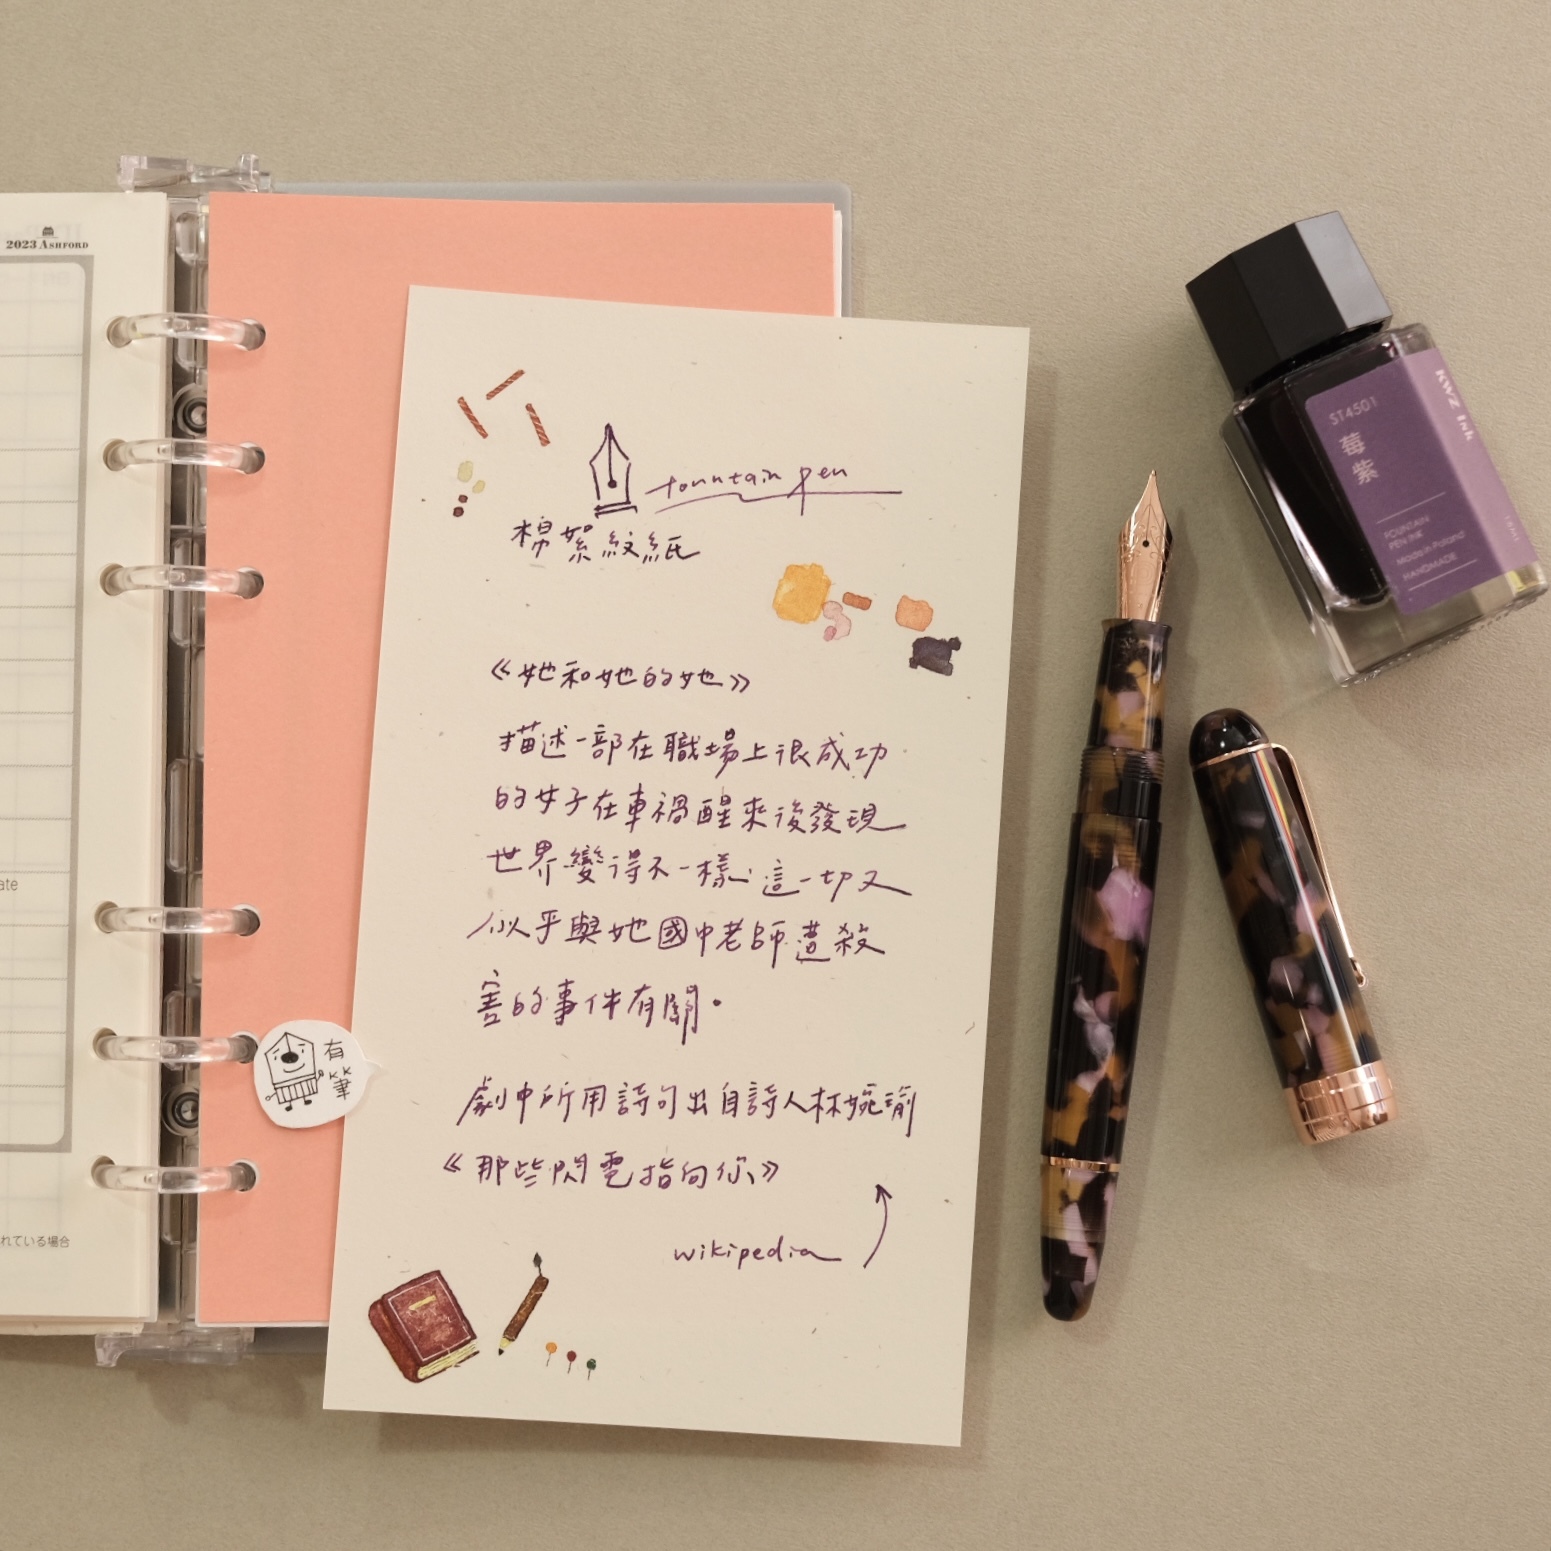 2023 ASHFORD
ate
れている場合
fountain pen
棉絮紋紙
《她和她的她》
描述一部在職場上很成功
的女子在車禍醒來後發現
世界變得不一樣，這一切又
似乎與她國中老師遭殺
害的事件有關。
劇中所用詩句出自詩人林婉瑜
《那些閃電指向你》
wikipedia
有筆
KWZ Ink
ST4501
莓紫
FOUNTAIN
PEN INK
Made in Poland
HANDMADE